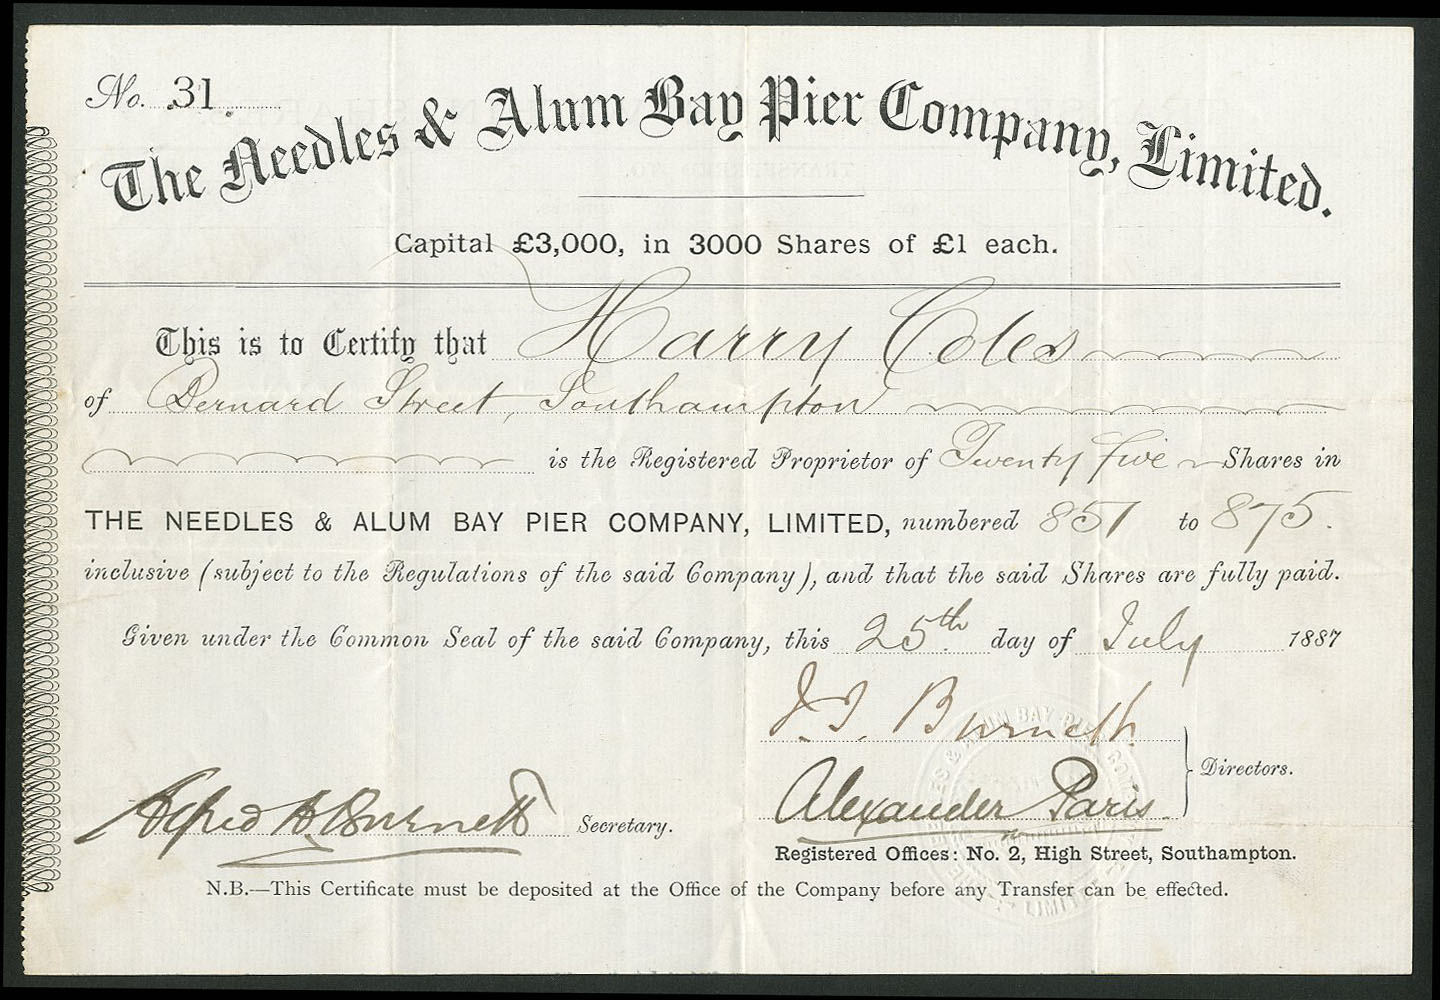 No. 31.
The Needles & Alum Bay Pier Company, Limited.
Capital £3,000, in 3000 Shares of £1 each.
This is to Certify that Harry Coles
of Bernard Street, Southampton
is the Registered Proprietor of Twenty five Shares in
THE NEEDLES & ALUM BAY PIER COMPANY, LIMITED, numbered 851 to 875.
inclusive (subject to the Regulations of the said Company), and that the said Shares are fully paid.
Given under the Common Seal of the said Company, this 25th. day of July 1887
J. J. Burnett.
Directors.
Alfred A. Burnett Secretary.
Alexander Paris.
Registered Offices: No. 2, High Street, Southampton.
N.B.—This Certificate must be deposited at the Office of the Company before any Transfer can be effected.